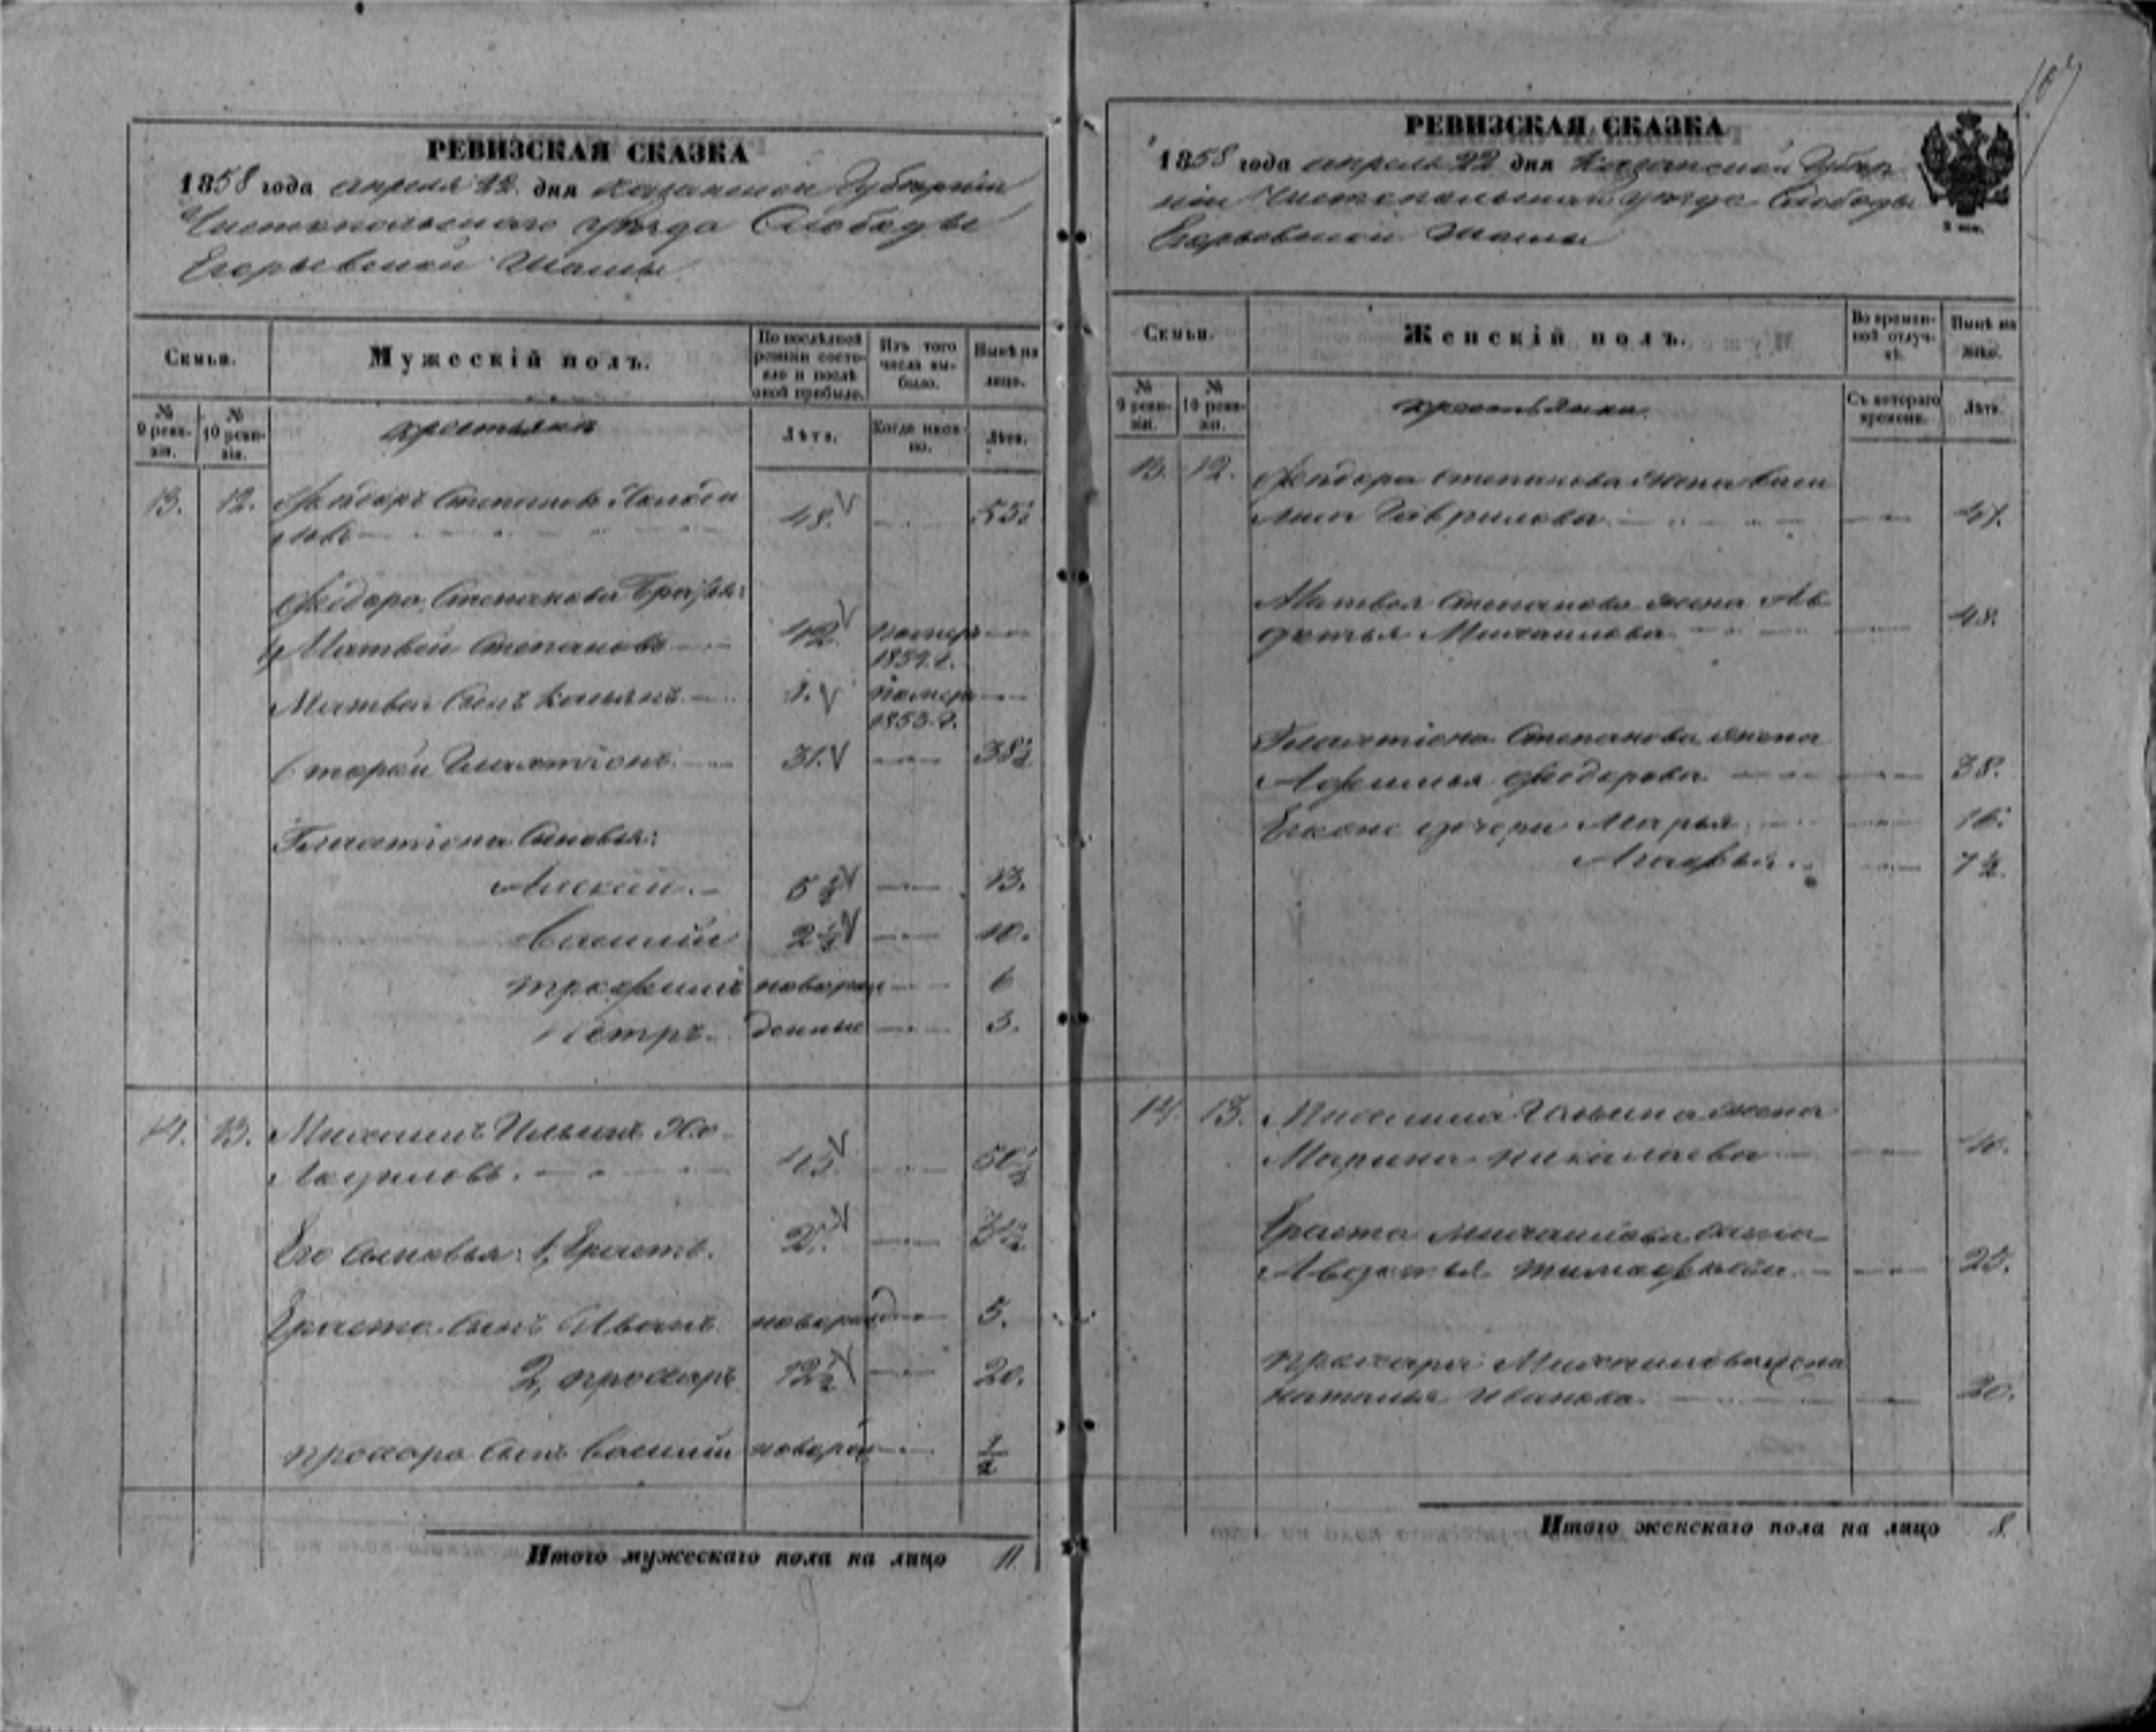 РЕВИЗСКАЯ СКАЗКА
1858 года апреля 22 дня Казанской Губерніи
Чистопольскаго уѣзда Слободы
Егорьевской
Семьи.
Мужескій полъ.
По послѣдней ревизіи состояло и послѣ оной прибыло.
Изъ того числа выбыло.
Нынѣ на лицо.
№ 9 ревизіи.
№ 10 ревизіи.
крестьяне
Лѣта.
Когда именно.
Лѣта.
13. 12. Федоръ Степановъ
48.
Федора Степанова Братья:
1, Матвей Степановъ 42 помер
1854. г.
Матвея Сынъ 1. помер
1853. г.
31. 38½
Сыновья:
Алексей 5½ 13.
Василий 2½ 10.
Трофимъ новорож 6
Петръ денные 3.
14. 13. Михаилъ Ильинъ Хо-
50½
Его Сыновья: 1, Ерастъ.
Ераста Сынъ Иванъ новорожд 5.
2, прохоръ 12½ 20.
прохора Сынъ Василий новорож ½
Итого мужескаго пола на лицо 11.
РЕВИЗСКАЯ СКАЗКА
1858 года апреля 22 дня Казанской Губер
ніи Чистопольскаго уѣзда Слободы
Егорьевской
Семьи.
Женскій полъ.
Во временной отлучкѣ.
Нынѣ на лицо.
№ 9 ревизіи.
№ 10 ревизіи.
Съ котораго времени.
Лѣта.
13. 12. Федора Степанова жена Васи
лиса Гаврилова 47.
Матвея Степанова жена Ав
дотья Михаилова 48.
Степанова жена
Афимья Федорова 38.
дочери Марья 16.
Агафья. 7½.
14. 13. Михаила Ильина жена
Марина николаева
Ераста Михайлова жена
Авдотья тимофеева 25.
прохора Михаилова жена
наталья Иванова 20.
Итого женскаго пола на лицо 8.